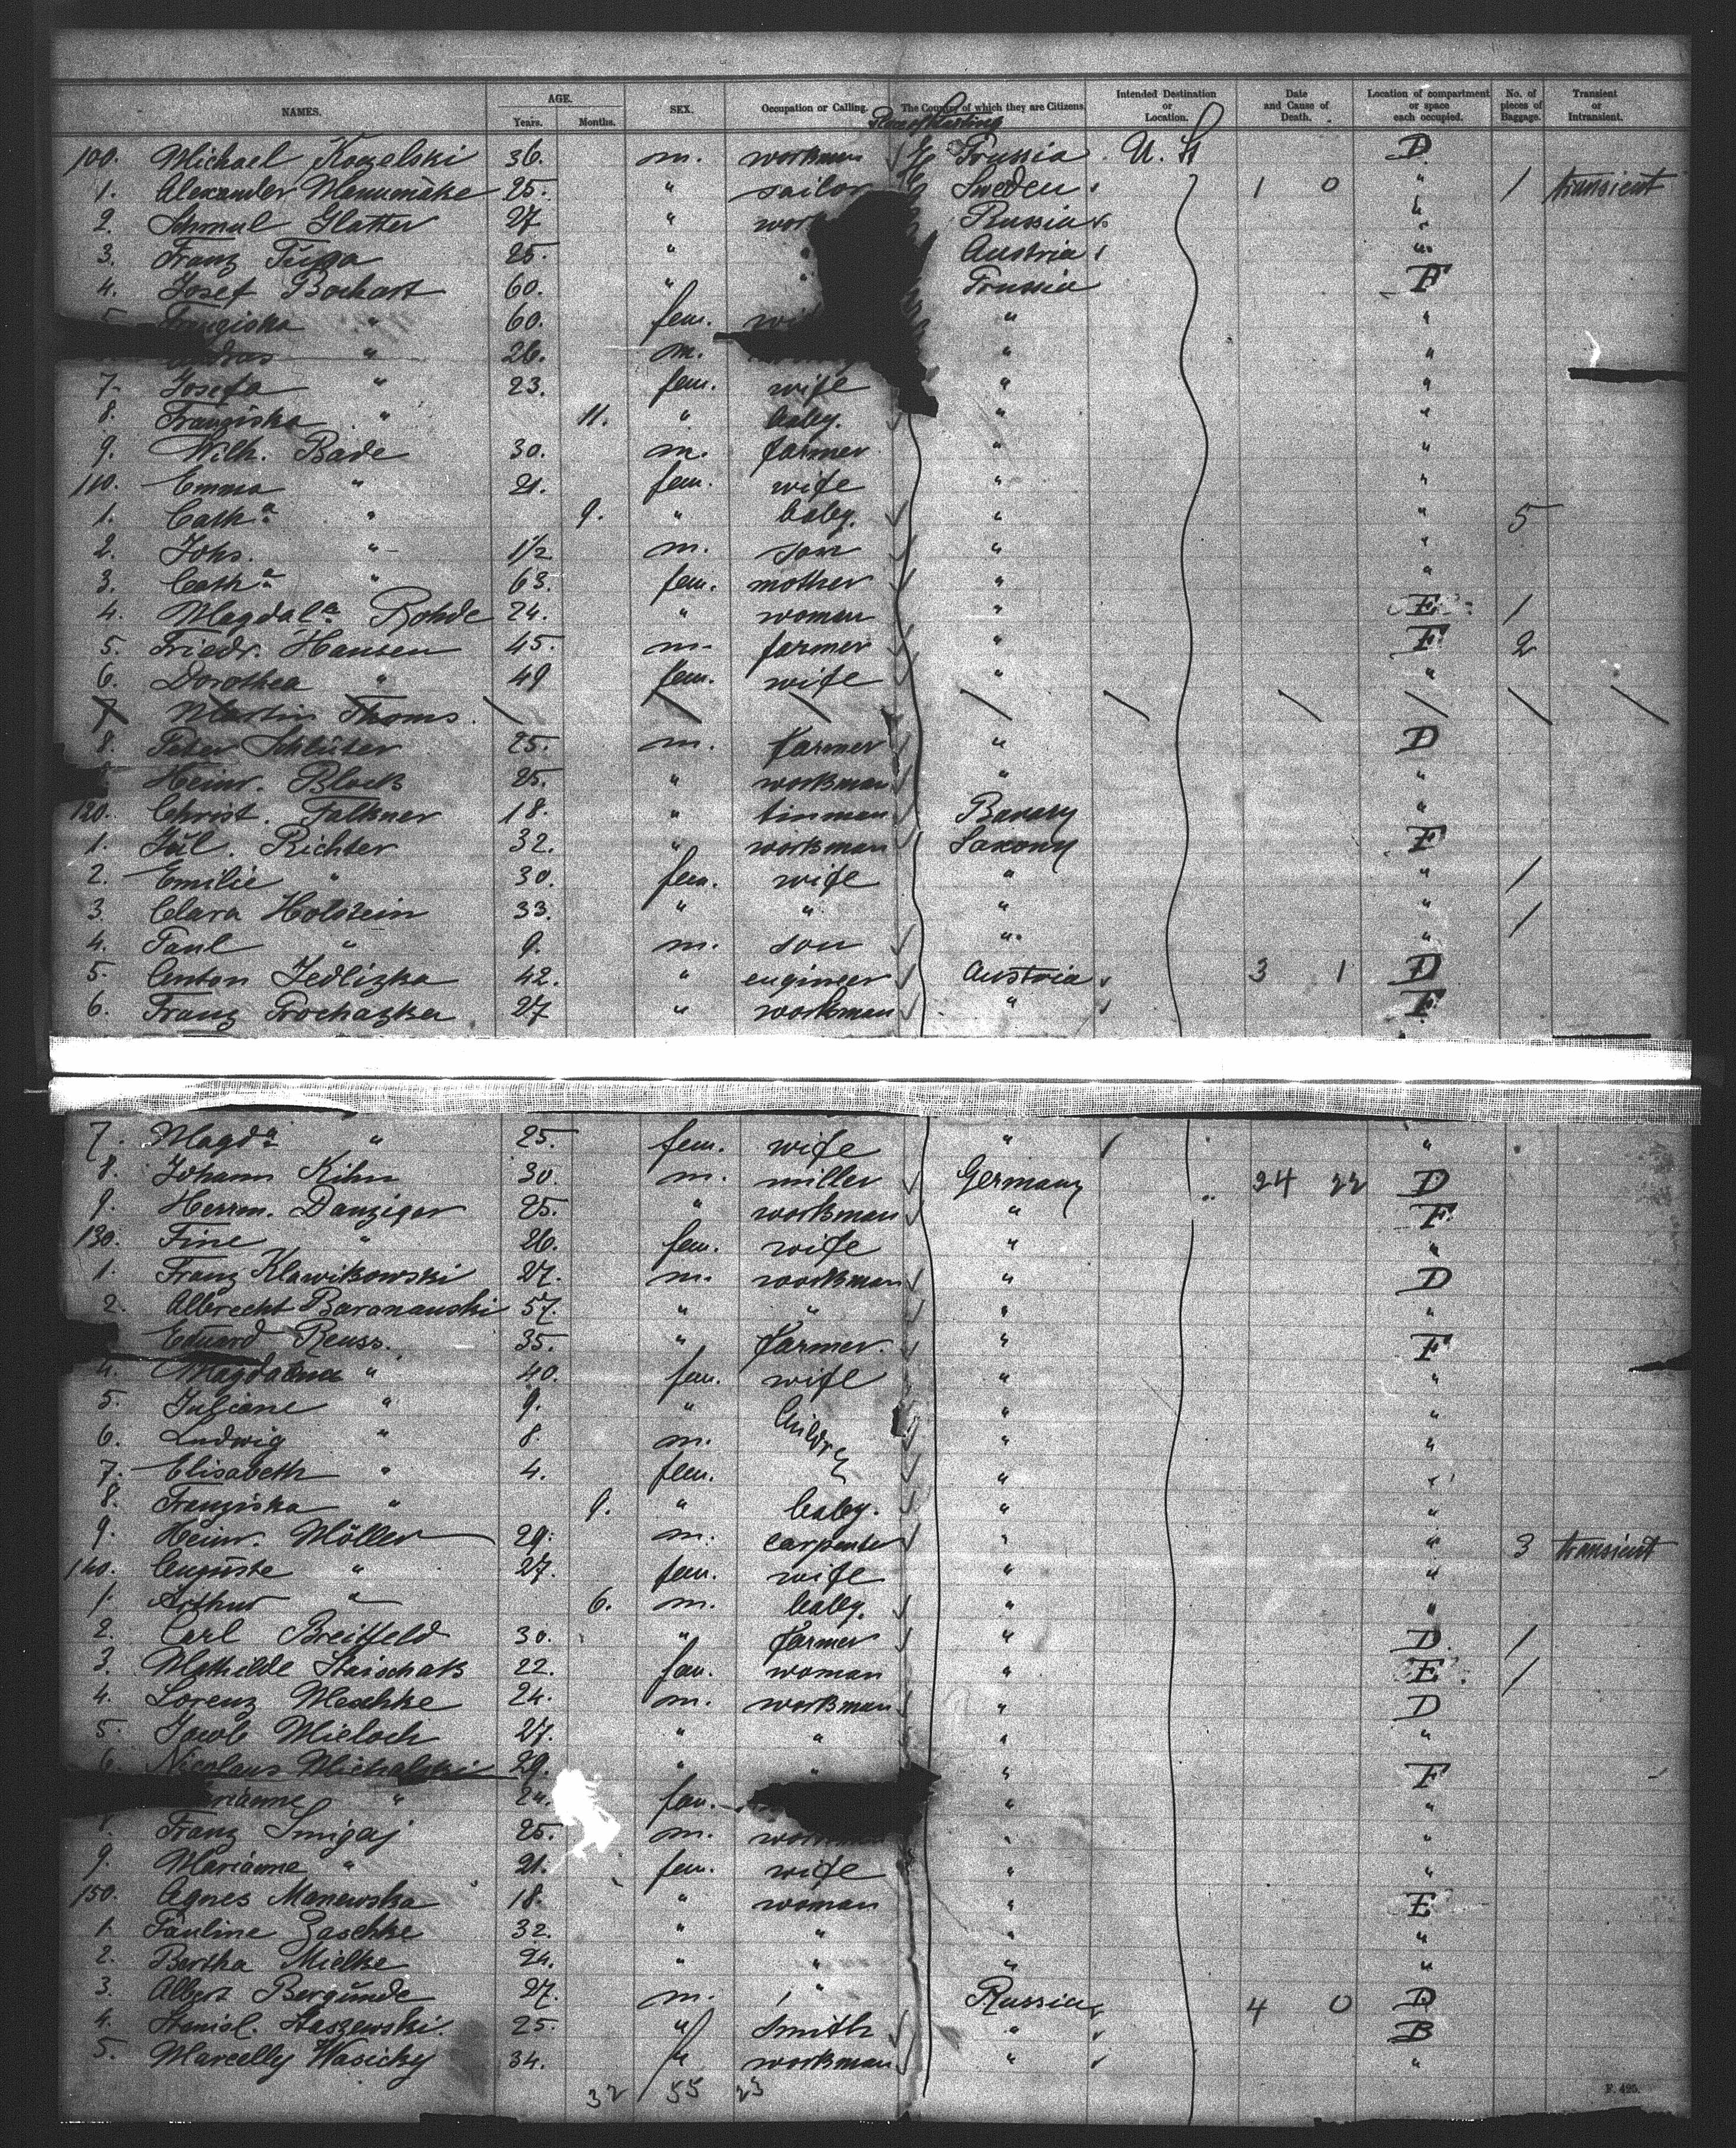 NAMES. AGE. Years. Months. SEX. Occupation or Calling. The Country of which they are Citizens. Intended Destination or Location. Date and Cause of Death. Location of compartment or space each occupied. No. of pieces of Baggage. Transient or Intransient.
100. Michael Kozelski 36. m. workman Prussia U. St D
1. Alexander Mannemäke 25. " sailor Sweden 1 0 " 1 transient
2. Schmul Glatter 27 " work Russia "
3. Franz Tuma 25. " " Austria "
4. Josef Bochart 60. " " Prussia F
5. Franziska " 60. fem. wi " "
Andras " 26. m. " "
7. Josefa " 23. fem. wife " "
8. Franziska " 11. " baby. " "
9. Wilh. Bade 30. m. farmer " "
110. Emma " 21. fem. wife " "
1. Catha " 9. " baby. " " 5
2. Johs. " 1½ m. son " "
3. Catha " 63. fem. mother " "
4. Magdala Rohde 24. " woman " E 1
5. Friedr. Hansen 45. m. farmer " F 2
6. Dorothea " 49 fem. wife " "
7 Martin Thoms.
8. Peter Schlüter 25. m. farmer " D
Heinr. Block 25. " workman " "
120. Christ. Falkner 18. " tinman Bavary "
1. Jul. Richter 32. " workman Saxony F
2. Emilie " 30. fem. wife " " 1
3. Clara Holstein 33. " " " " 1
4. Paul " 9. m. son " "
5. Anton Jedlizka 42. " engineer Austria 3 1 D
6. Franz Prochazka 27 " workman " F
7. Magda " 25. fem. wife " "
8. Johann Kihn 30. m. miller Germany 24 22 D
9. Herrm. Danziger 25. " workman " F
130. Fine " 26. fem. wife " "
1. Franz Klawikowski 27. m. workman " D
2. Albrecht Baranauski 57. " " " "
Eduard Reuss. 35. " farmer. " F
4. Magdalena " 40. fem. wife " "
5. Juliane " 9. " Children " "
6. Ludwig " 8. m. " "
7. Elisabeth " 4. fem. " "
8. Franziska " 9. " baby. " "
9. Heinr. Möller 29. m. carpenter " " 3 transient
140. Auguste " 27. fem. wife " "
1. Arthur " 6. m. baby. " "
2. Carl Breitfeld 30. " farmer " D 1
3. Mathilde Staschak 22. fem. woman " E 1
4. Lorenz Meschke 24. m. workman " D
5. Jacob Mieloch 27. " " " "
6. Nicolaus Michalski 29. " " " F
rianne " 24. fem. " "
8. Franz Smigaj 25. m. workman " "
9. Marianne " 21. fem. wife " "
150. Agnes Manewska 18. " woman " E
1. Pauline Zaschke 32. " " " "
2. Bertha Mielke 24. " " " "
3. Albert Bergunde 27. m. " Russia 4 0 D
4. Stanisl. Staszewski. 25. " smith " B
5. Marcelly Wasicky 34. " workman " "
32 55 23
F. 495.